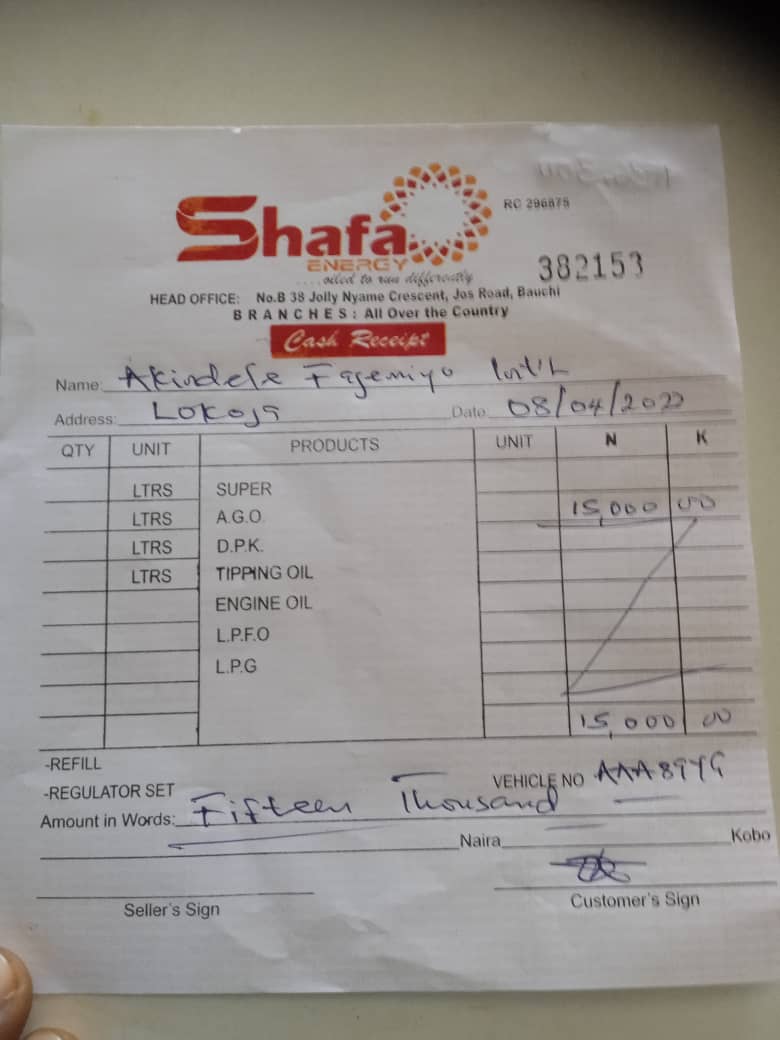 Shafa
ENERGY
RC 296875
.....oiled to run differently
382153
HEAD OFFICE: No.B 38 Jolly Nyame Crescent, Jos Road, Bauchi
BRANCHES: All Over the Country
Cash Receipt
Name: Akindele
Address: Lokoja Date: 08/04/2022
QTY UNIT PRODUCTS UNIT N K
LTRS SUPER
LTRS A.G.O. 15,000 00
LTRS D.P.K.
LTRS TIPPING OIL
ENGINE OIL
L.P.F.O
L.P.G
15,000 00
-REFILL
-REGULATOR SET VEHICLE NO
Amount in Words: Fifteen Thousand
Naira Kobo
Seller's Sign Customer's Sign